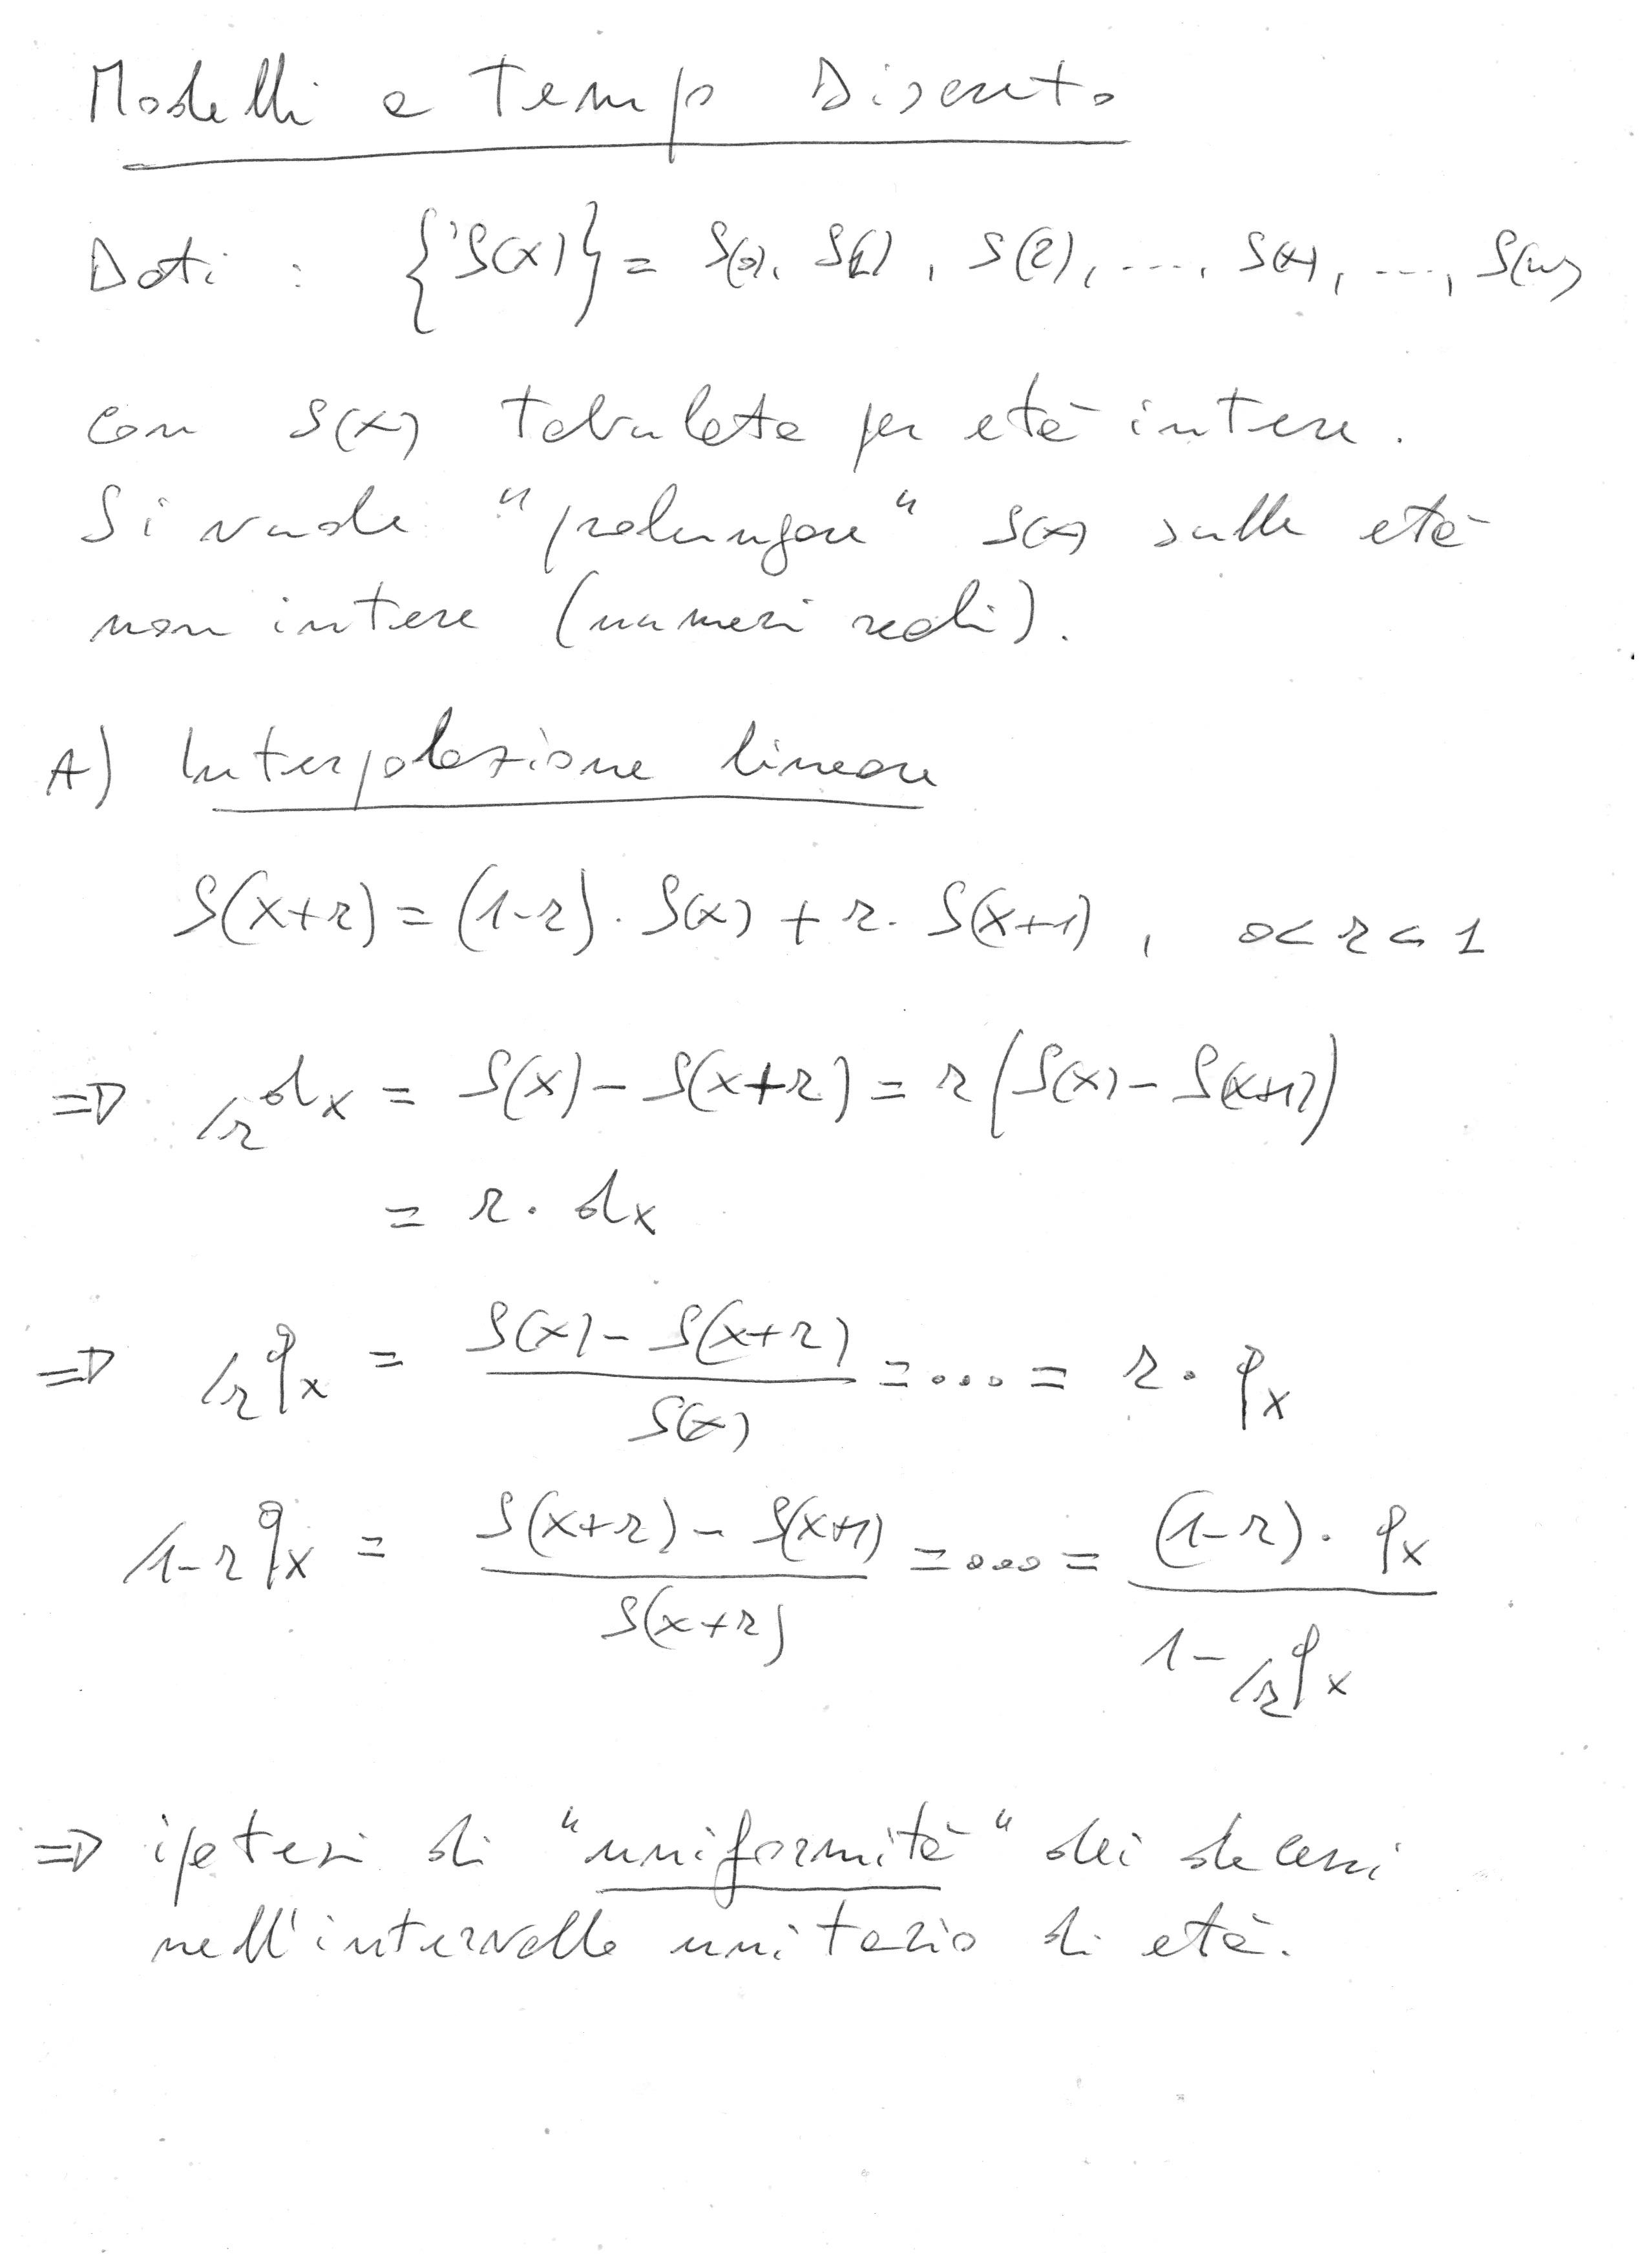 Modelli a Tempo Discreto
Dati : {S(x)} = S(0), S(1), S(2), ..., S(x), ..., S(ω)
con S(x) tabulata per età intere.
Si vuole "prolungare" S(x) sulle età
non intere (numeri reali).
A) Interpolazione lineare
S(x+r) = (1-r) · S(x) + r · S(x+1) , 0 < r < 1
⇒ /r dx = S(x) - S(x+r) = r (S(x) - S(x+1))
= r · dx
⇒ /r qx = (S(x) - S(x+r)) / S(x) = ... = r · qx
/1-r qx = (S(x+r) - S(x+1)) / S(x+r) = ... = (1-r) · qx / (1 - /r qx)
⇒ ipotesi di "uniformità" dei decessi
nell'intervallo unitario di età.